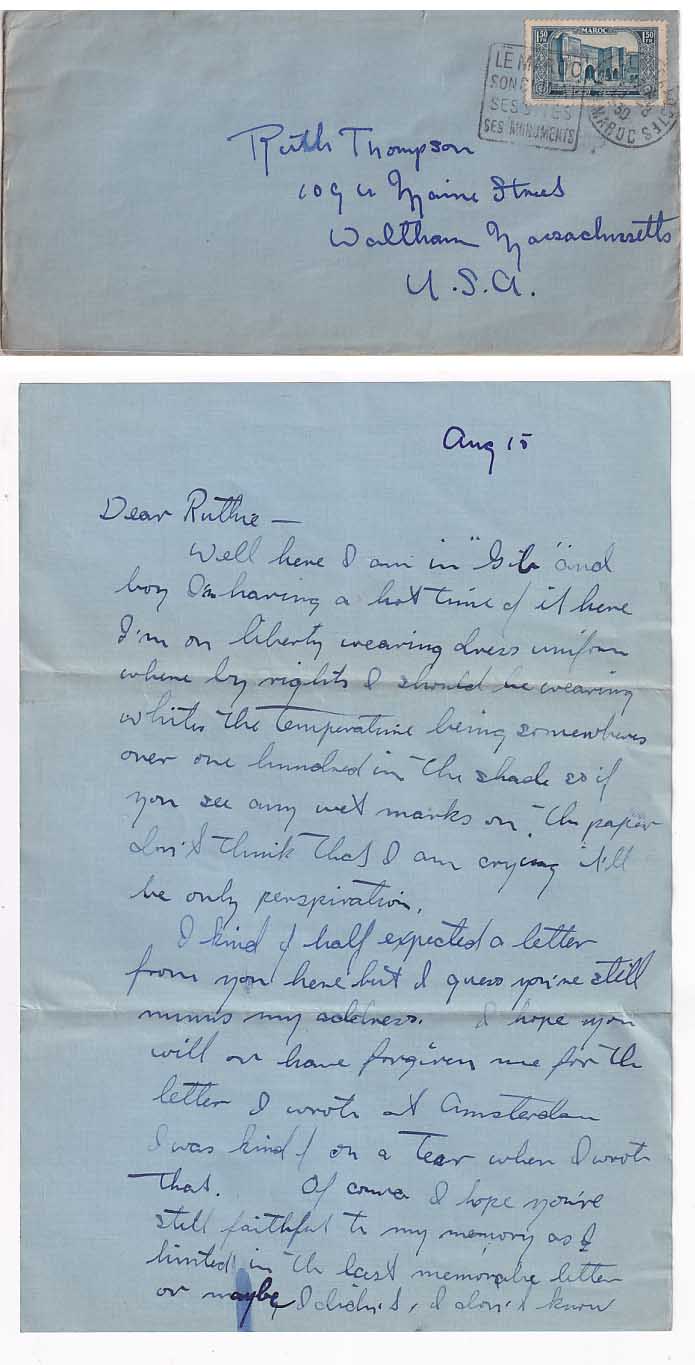 MAROC
1F50 1F50
LE MAROC
SON
SES SITES
SES MONUMENTS
POSTES
30
MAROC
Ruth Thompson
109 Maine Street
Waltham Massachussetts
U.S.A.
Aug 15
Dear Ruthie —
Well here I am in "Gib" and
boy I'm having a hot time of it here
I'm on liberty wearing dress uniform
where by rights I should be wearing
whites the temperature being somewheres
over one hundred in the shade so if
you see any wet marks on the paper
don't think that I am crying it'll
be only perspiration.
I kind of half expected a letter
from you here but I guess you're still
minus my address. I hope you
will or have forgiven me for the
letter I wrote at Amsterdam
I was kind of on a Tear when I wrote
that. Of course I hope you're
still faithful to my memory as I
hinted in the last memorable letter
or maybe I didn't, I don't know